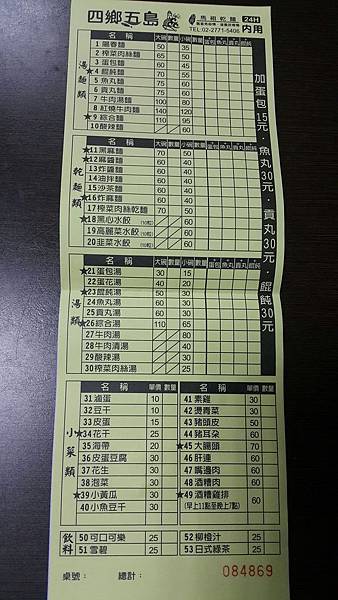 四鄉五島
馬祖乾麵
24H
內用
TEL:02-2771-5406
加蛋包15元．魚丸30元．貢丸30元．餛飩30元
湯麵類
名稱 大碗 數量 小碗 數量 蛋包 魚丸 貢丸 餛飩
1 陽春麵 50 35
2 麻醬麵
3 蛋包麵 60 45
★4 餛飩麵 70 55
5 魚丸麵 70 55
6 貢丸麵 70 55
7 牛肉湯麵 100 80
8 紅燒牛肉麵 140 120
★9 綜合麵 110 95
10 酸辣麵 60
乾麵類
名稱 大碗 數量 小碗 數量 蛋包 魚丸 貢丸 餛飩
★11 黑麻麵 70 50
★12 麻醬麵
13 炸醬麵
14 油拌麵
15 沙茶麵
★16 炸麻麵
17 榨菜肉絲乾麵 70 50
★18 黑心水餃 (10粒) 60
19 高麗菜水餃 (10粒) 60
20 韭菜水餃 (10粒) 60
湯類
名稱 大碗 數量 小碗 數量 蛋包 魚丸 貢丸 餛飩
★21 蛋包湯 30 15
22 蛋花湯 40 20
★23 餛飩湯
24 魚丸湯
25 貢丸湯 60 30
★26 綜合湯 110 65
27 牛肉湯 80
28 牛肉清湯 40
29 酸辣湯 30
30 榨菜肉絲湯 30
小菜類
名稱 單價 數量
31 滷蛋 10
32 豆干 10
33 皮蛋 15
★34 花干 25
35 海帶 20
36 皮蛋豆腐 30
37 花生 30
38 泡菜 30
★39 小黃瓜 30
40 小魚豆干 30
名稱 單價 數量
41 素雞 30
42 燙青菜 30
43 豬頭皮 50
44 豬耳朵 60
★45 大腸頭 70
46 肝連 60
47 嘴邊肉 60
48 酒糟肉 60
★49 酒糟雞排 60
(早上11點至晚上7點)
飲料
50 可口可樂 25
51 雪碧 25
52 柳橙汁 25
53 日式綠茶 25
桌號：
總計：
084869